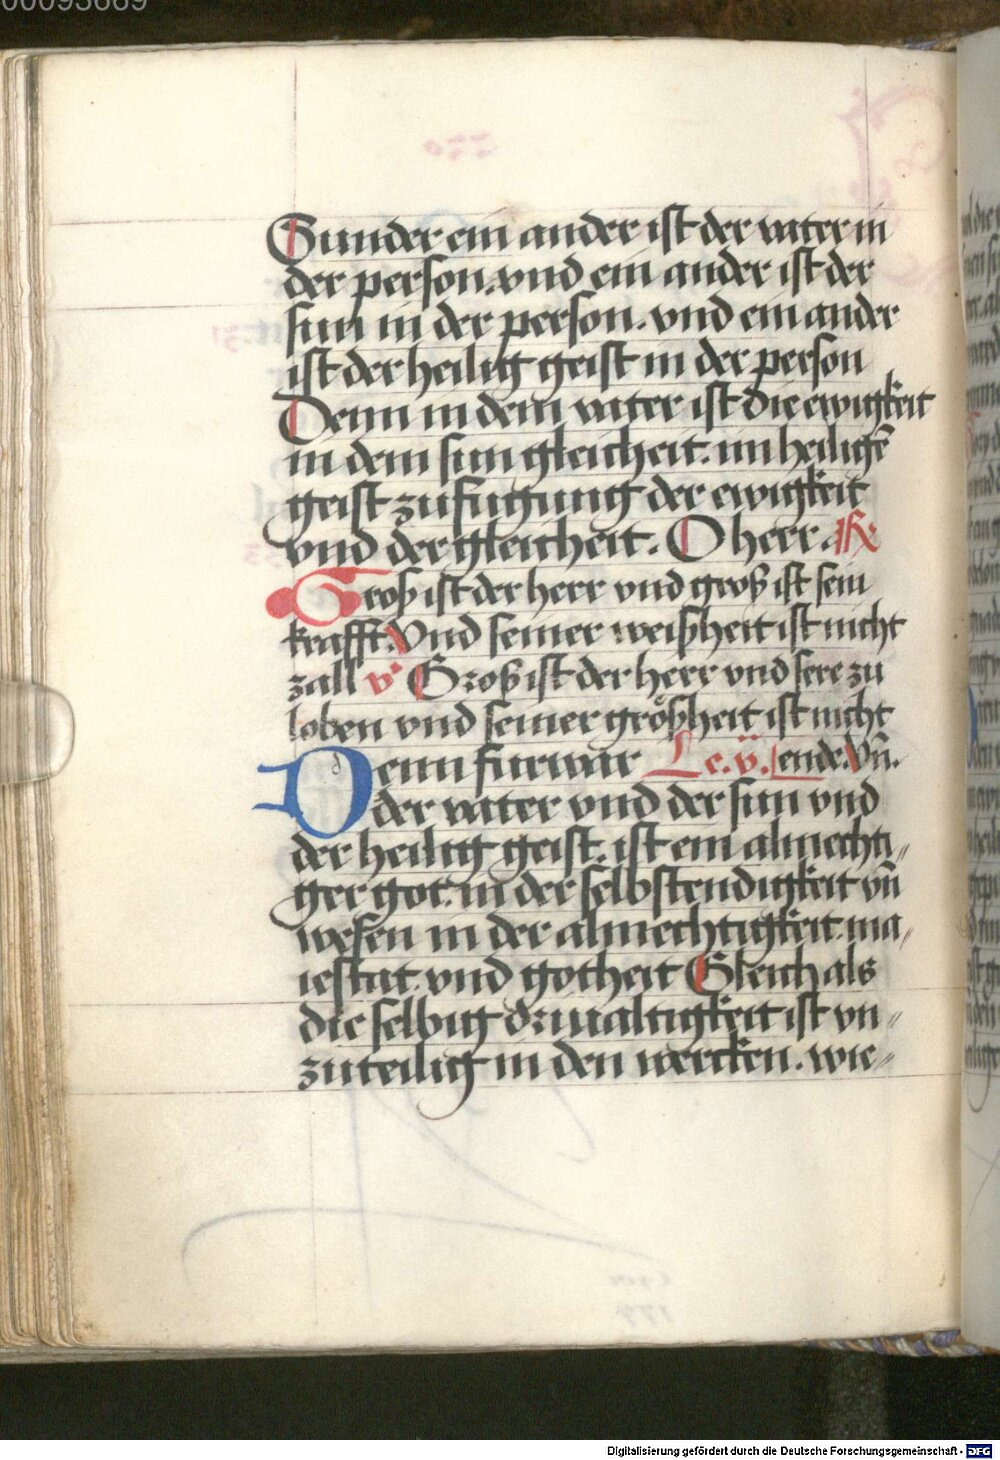 00093669
Sunder ein ander ist der vater in
der person. vnd ein ander ist der
sun in der person. vnd ein ander
ist der heilig geist in der person
Denn in dem vater ist die ewigkeit
in dem sun gleicheit. im heiligē
geist zufugung der ewigkeit
vnd der gleicheit. O herr. R
Groß ist der herr vnd groß ist sein
krafft. Vnd seiner weißheit ist nicht
zall v Groß ist der herr vnd sere zu
loben vnd seiner größheit ist nicht
Denn furwar Le. ij. sende. Vn̄.
der vater vnd der sun vnd
der heilig geist. ist ein almechti〃
ger got. in der selbstendigkeit vn̄
wesen in der almechtigkeit. ma〃
iestat. vnd gotheit Gleich als
die selbig driualtigkeit ist vn〃
zuteilig in den wercken. wie〃
Digitalisierung gefördert durch die Deutsche Forschungsgemeinschaft - DFG